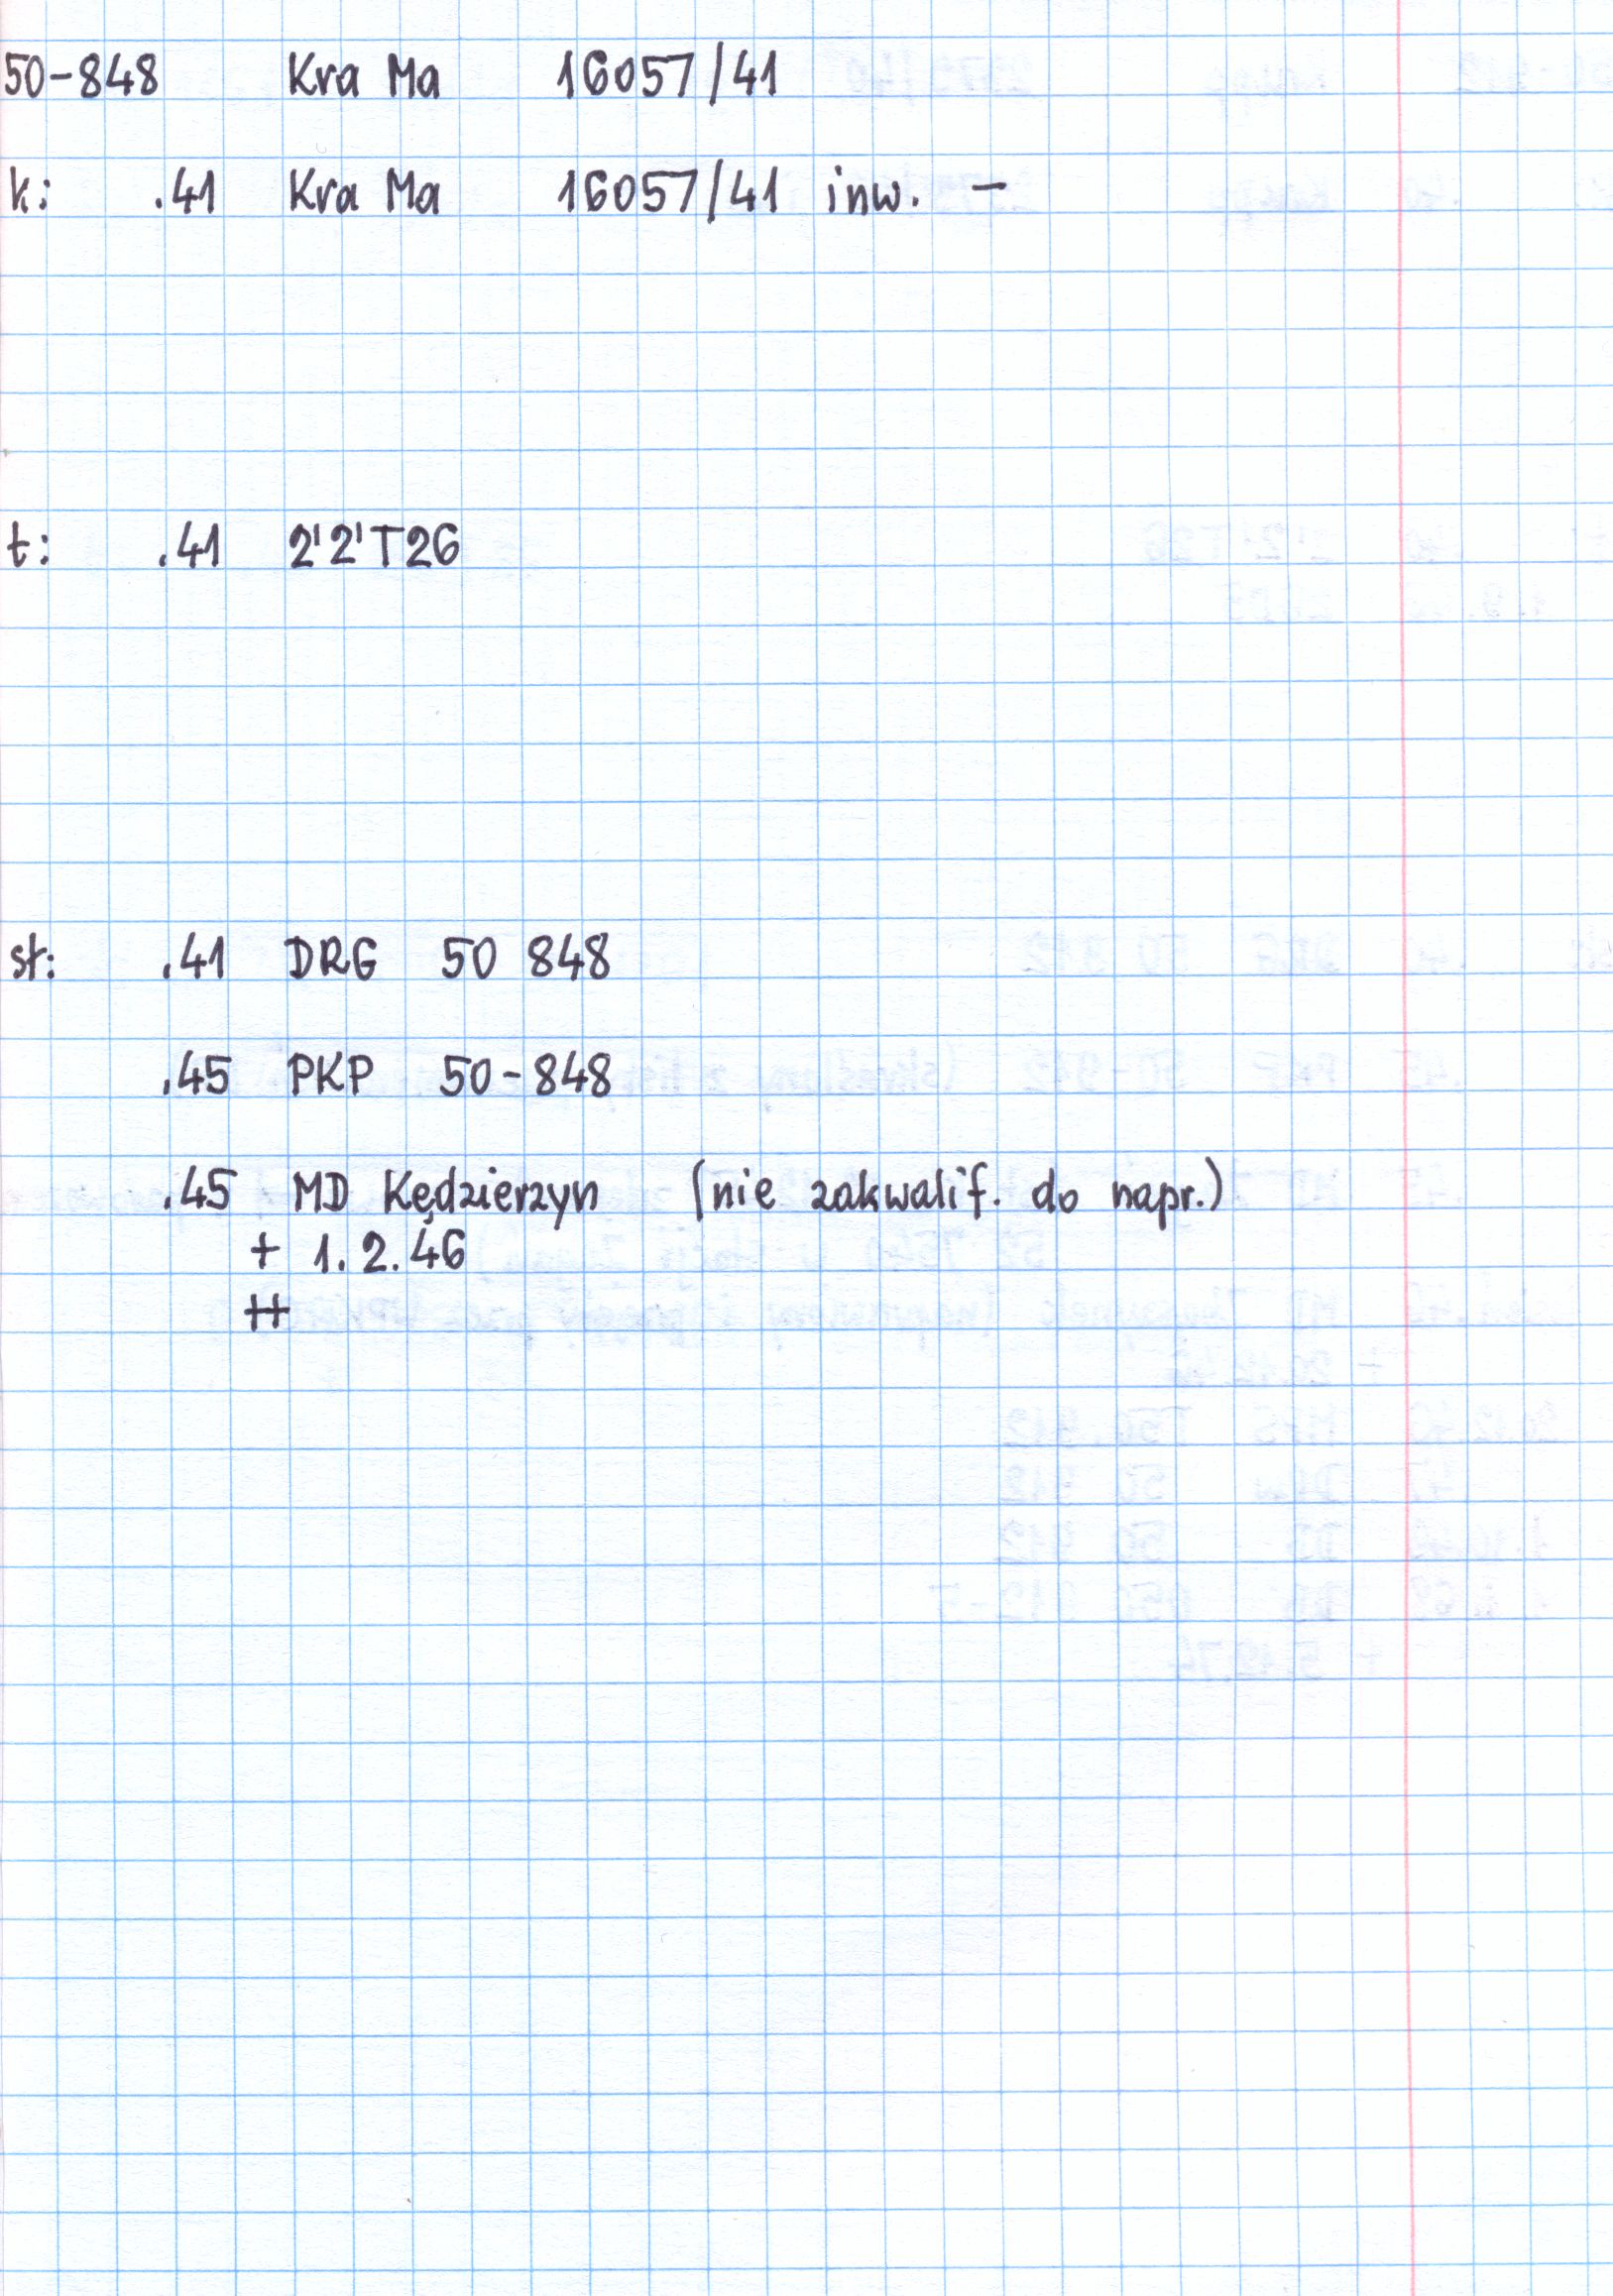 50-848 Kra Ma 16057/41
k: .41 Kra Ma 16057/41 inw. –
t: .41 2'2'T26
st: .41 DRG 50 848
.45 PKP 50-848
.45 MD Kędzierzyn (nie zakwalif. do napr.)
+ 1.2.46
++